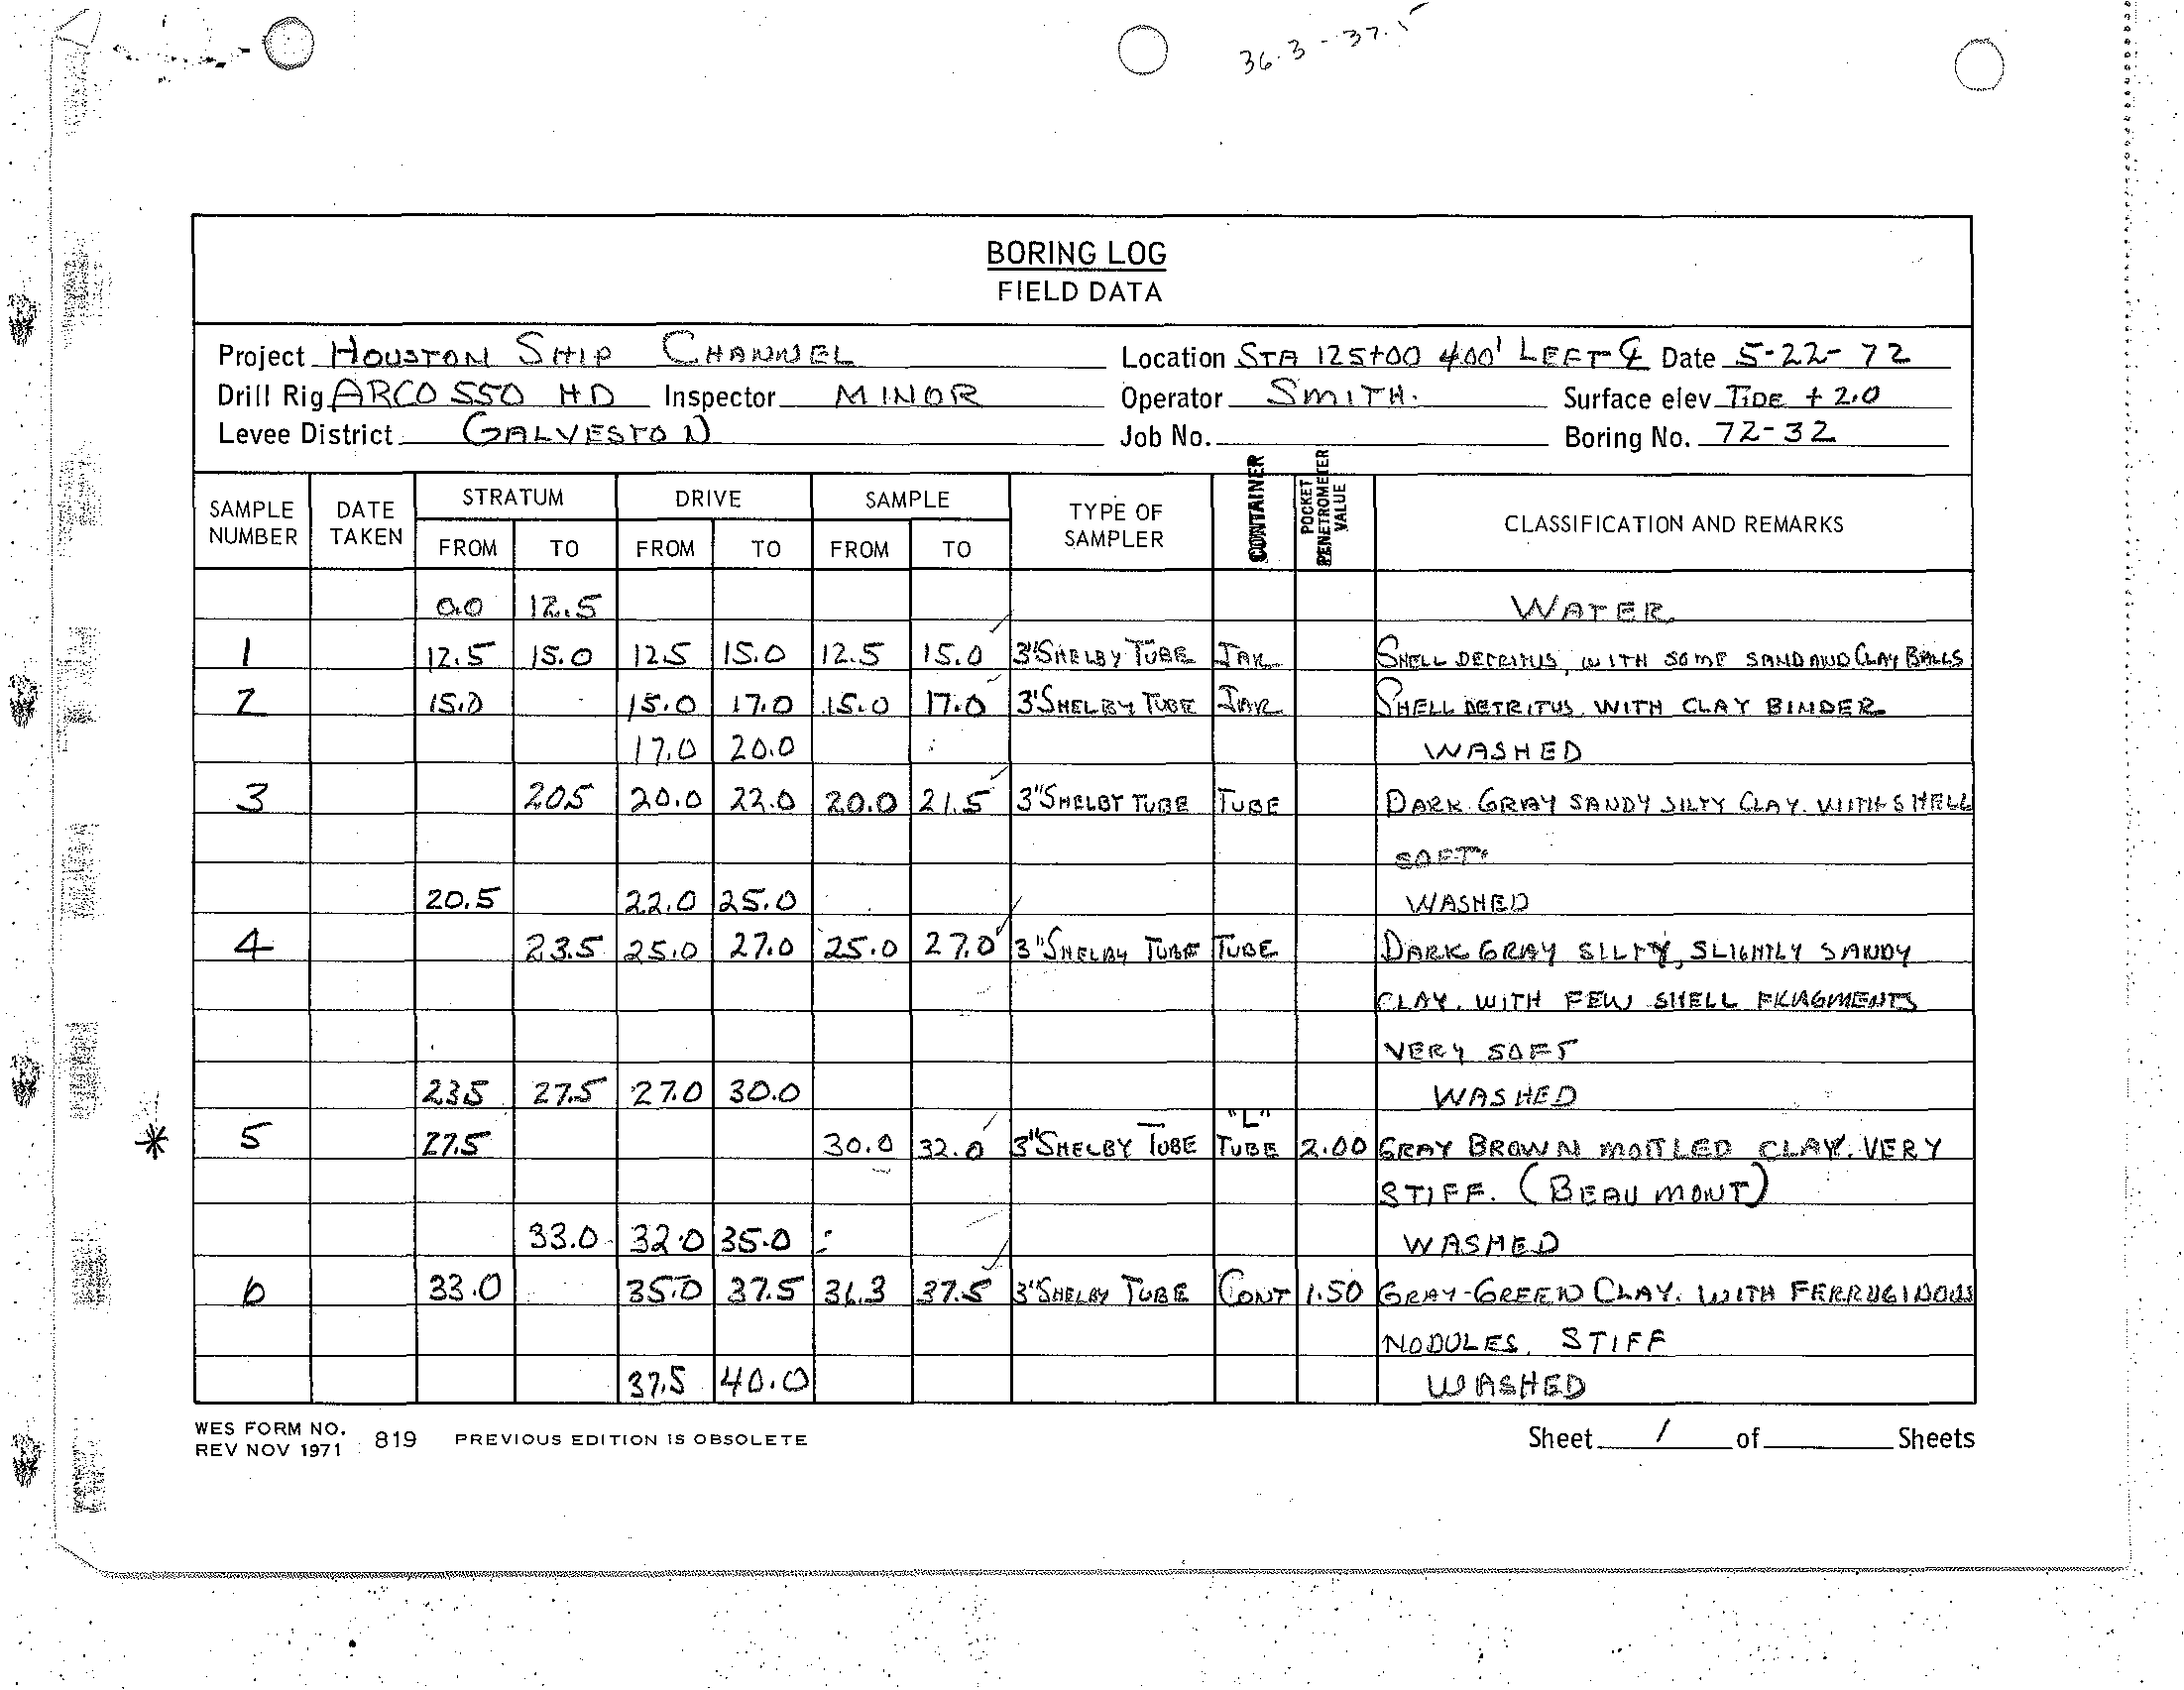 36.3 - 37.5
BORING LOG
FIELD DATA
Project HOUSTON SHIP CHANNEL Location STA 125+00 400' LEFT ℄ Date 5-22-72
Drill Rig ARCO 550 HD Inspector MINOR Operator SMITH. Surface elev TIDE +2.0
Levee District GALVESTON Job No. Boring No. 72-32
SAMPLE NUMBER DATE TAKEN STRATUM DRIVE SAMPLE TYPE OF SAMPLER CONTAINER POCKET PENETROMETER VALUE CLASSIFICATION AND REMARKS
FROM TO FROM TO FROM TO
0.0 12.5 WATER
1 12.5 15.0 12.5 15.0 12.5 15.0 3"SHELBY TUBE JAR SHELL DETRITUS, WITH SOME SAND AND CLAY BALLS
2 15.0 15.0 17.0 15.0 17.0 3"SHELBY TUBE JAR SHELL DETRITUS WITH CLAY BINDER
17.0 20.0 WASHED
3 20.5 20.0 22.0 20.0 21.5 3"SHELBY TUBE TUBE DARK GRAY SANDY SILTY CLAY. WITH SHELL
SOFT.
20.5 22.0 25.0 WASHED
4 23.5 25.0 27.0 25.0 27.0 3"SHELBY TUBE TUBE DARK GRAY SILTY, SLIGHTLY SANDY
CLAY. WITH FEW SHELL FRAGMENTS
VERY SOFT
23.5 27.5 27.0 30.0 WASHED
* 5 27.5 30.0 32.0 3"SHELBY TUBE "L" TUBE 2.00 GRAY BROWN MOTTLED CLAY. VERY
STIFF. (BEAUMONT)
33.0 32.0 35.0 WASHED
6 33.0 35.0 37.5 36.3 37.5 3"SHELBY TUBE CONT 1.50 GRAY-GREEN CLAY. WITH FERRUGINOUS
NODULES. STIFF
37.5 40.0 WASHED
WES FORM NO. 819 PREVIOUS EDITION IS OBSOLETE Sheet 1 of Sheets
REV NOV 1971